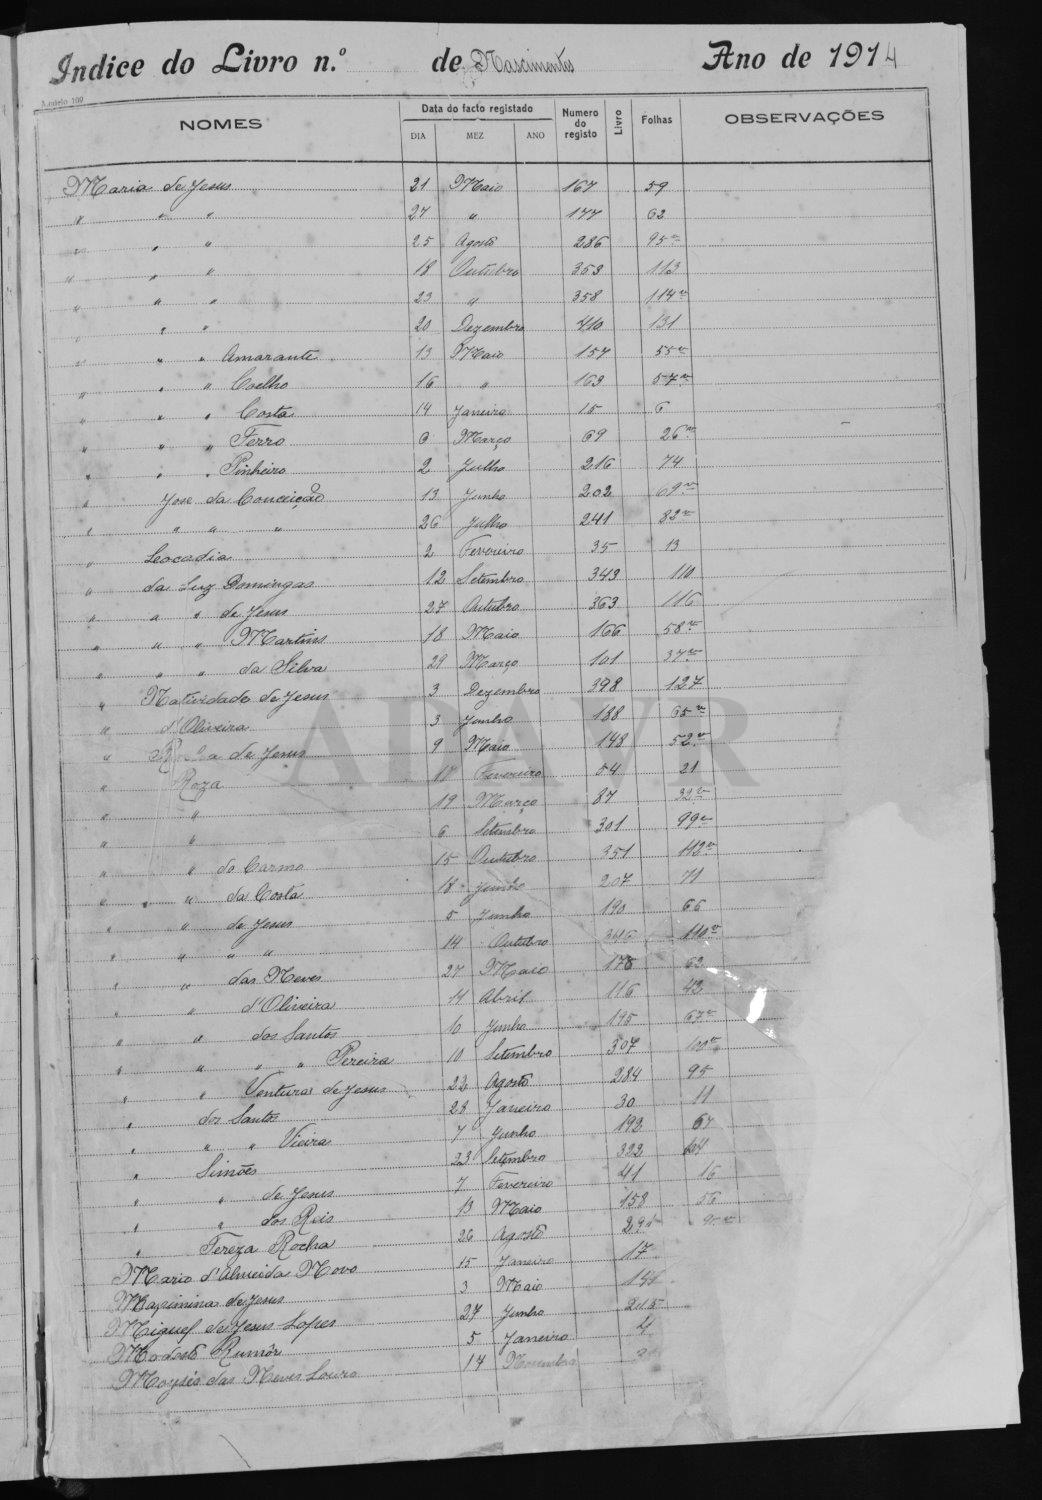 Indice do Livro n.º de Nascimentos Ano de 1914
Modelo 100
NOMES Data do facto registado Numero do registo Livro Folhas OBSERVAÇÕES
DIA MEZ ANO
Maria de Jesus 21 Maio 167 59
" " " 27 " 177 62
" " " 25 Agosto 286 95v
" " " 18 Outubro 353 113
" " " 23 " 358 114v
" " " 20 Dezembro 410 131
" " " Amarante 13 Maio 157 55v
" " " Coelho 16 " 163 57v
" " " Costa 14 Janeiro 15 6
" " " Ferro 6 Março 69 26v
" " " Pinheiro 2 Julho 216 74
" Jose da Conceição 13 Junho 202 69v
" " " " 26 Julho 241 82v
" Leocadia 2 Fevereiro 35 13
" da Luz Domingas 12 Setembro 343 110
" " " de Jesus 27 Outubro 363 116
" " " Martins 18 Maio 166 58v
" " " da Silva 29 Março 101 37v
" Natividade de Jesus 3 Dezembro 398 127
" d'Oliveira 3 Junho 188 65v
" de Jesus 9 Maio 148 52v
" Roza 17 Fevereiro 54 21
" " 19 Março 87 32v
" " 6 Setembro 301 99v
" " do Carmo 15 Outubro 351 112v
" " da Costa 18 Junho 207 71
" " de Jesus 5 Junho 190 66
" " " " 14 Outubro 346 110v
" " das Neves 27 Maio 178 62
" " d'Oliveira 14 Abril 116 42
" " dos Santos 10 Junho 195 67v
" " " " Pereira 10 Setembro 307
" " Ventura de Jesus 22 Agosto 284 95
" dos Santos 28 Janeiro 30 11
" " " Vieira 7 Junho 192 67
" Simões 23 Setembro 322 104
" " de Jesus 7 Fevereiro 41 16
" " dos Reis 13 Maio 158 56
" Tereza Rocha 26 Agosto
Mario d'Almeida Novo 15 Janeiro 17
Maximina de Jesus 3 Maio
Miguel de Jesus Lopes 27 Junho 215
Modesto Rumôr 5 Janeiro 4
Moysés das Neves Louro 14 Novembro
ADAVR